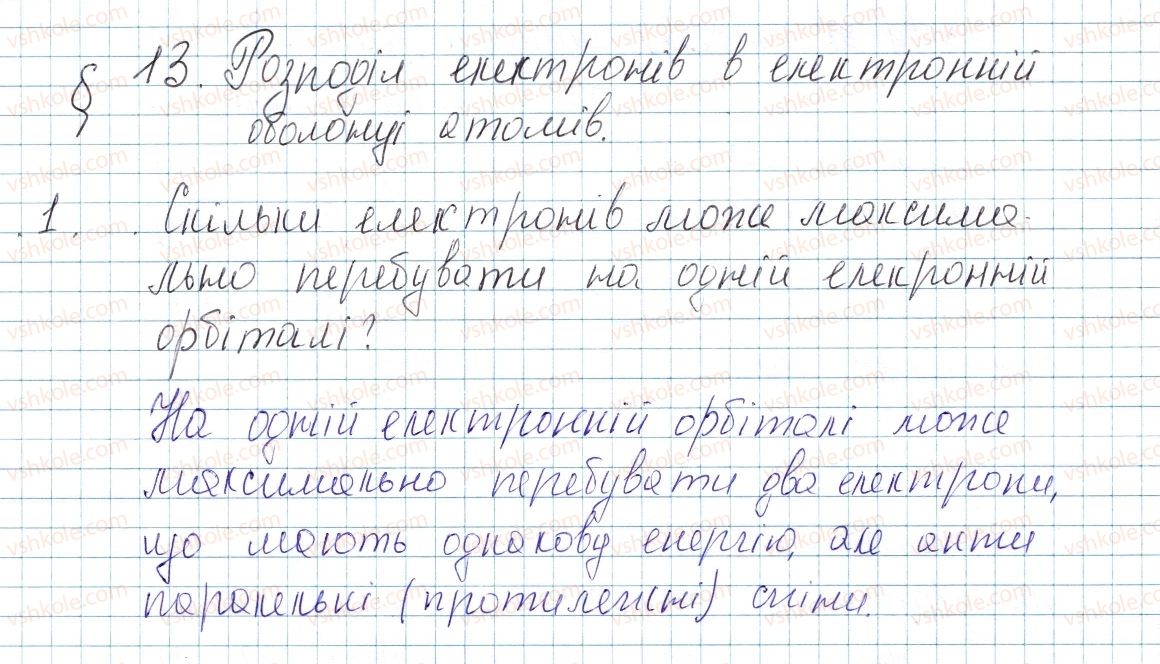 § 13. Розподіл електронів в електронній
оболонці атомів.
1. Скільки електронів може максима-
льно перебувати на одній елекронній
орбіталі?
На одній електронній орбіталі може
максимально перебувати два електрони,
що мають однакову енергію, але анти
паралельні (протилежні) спіни.